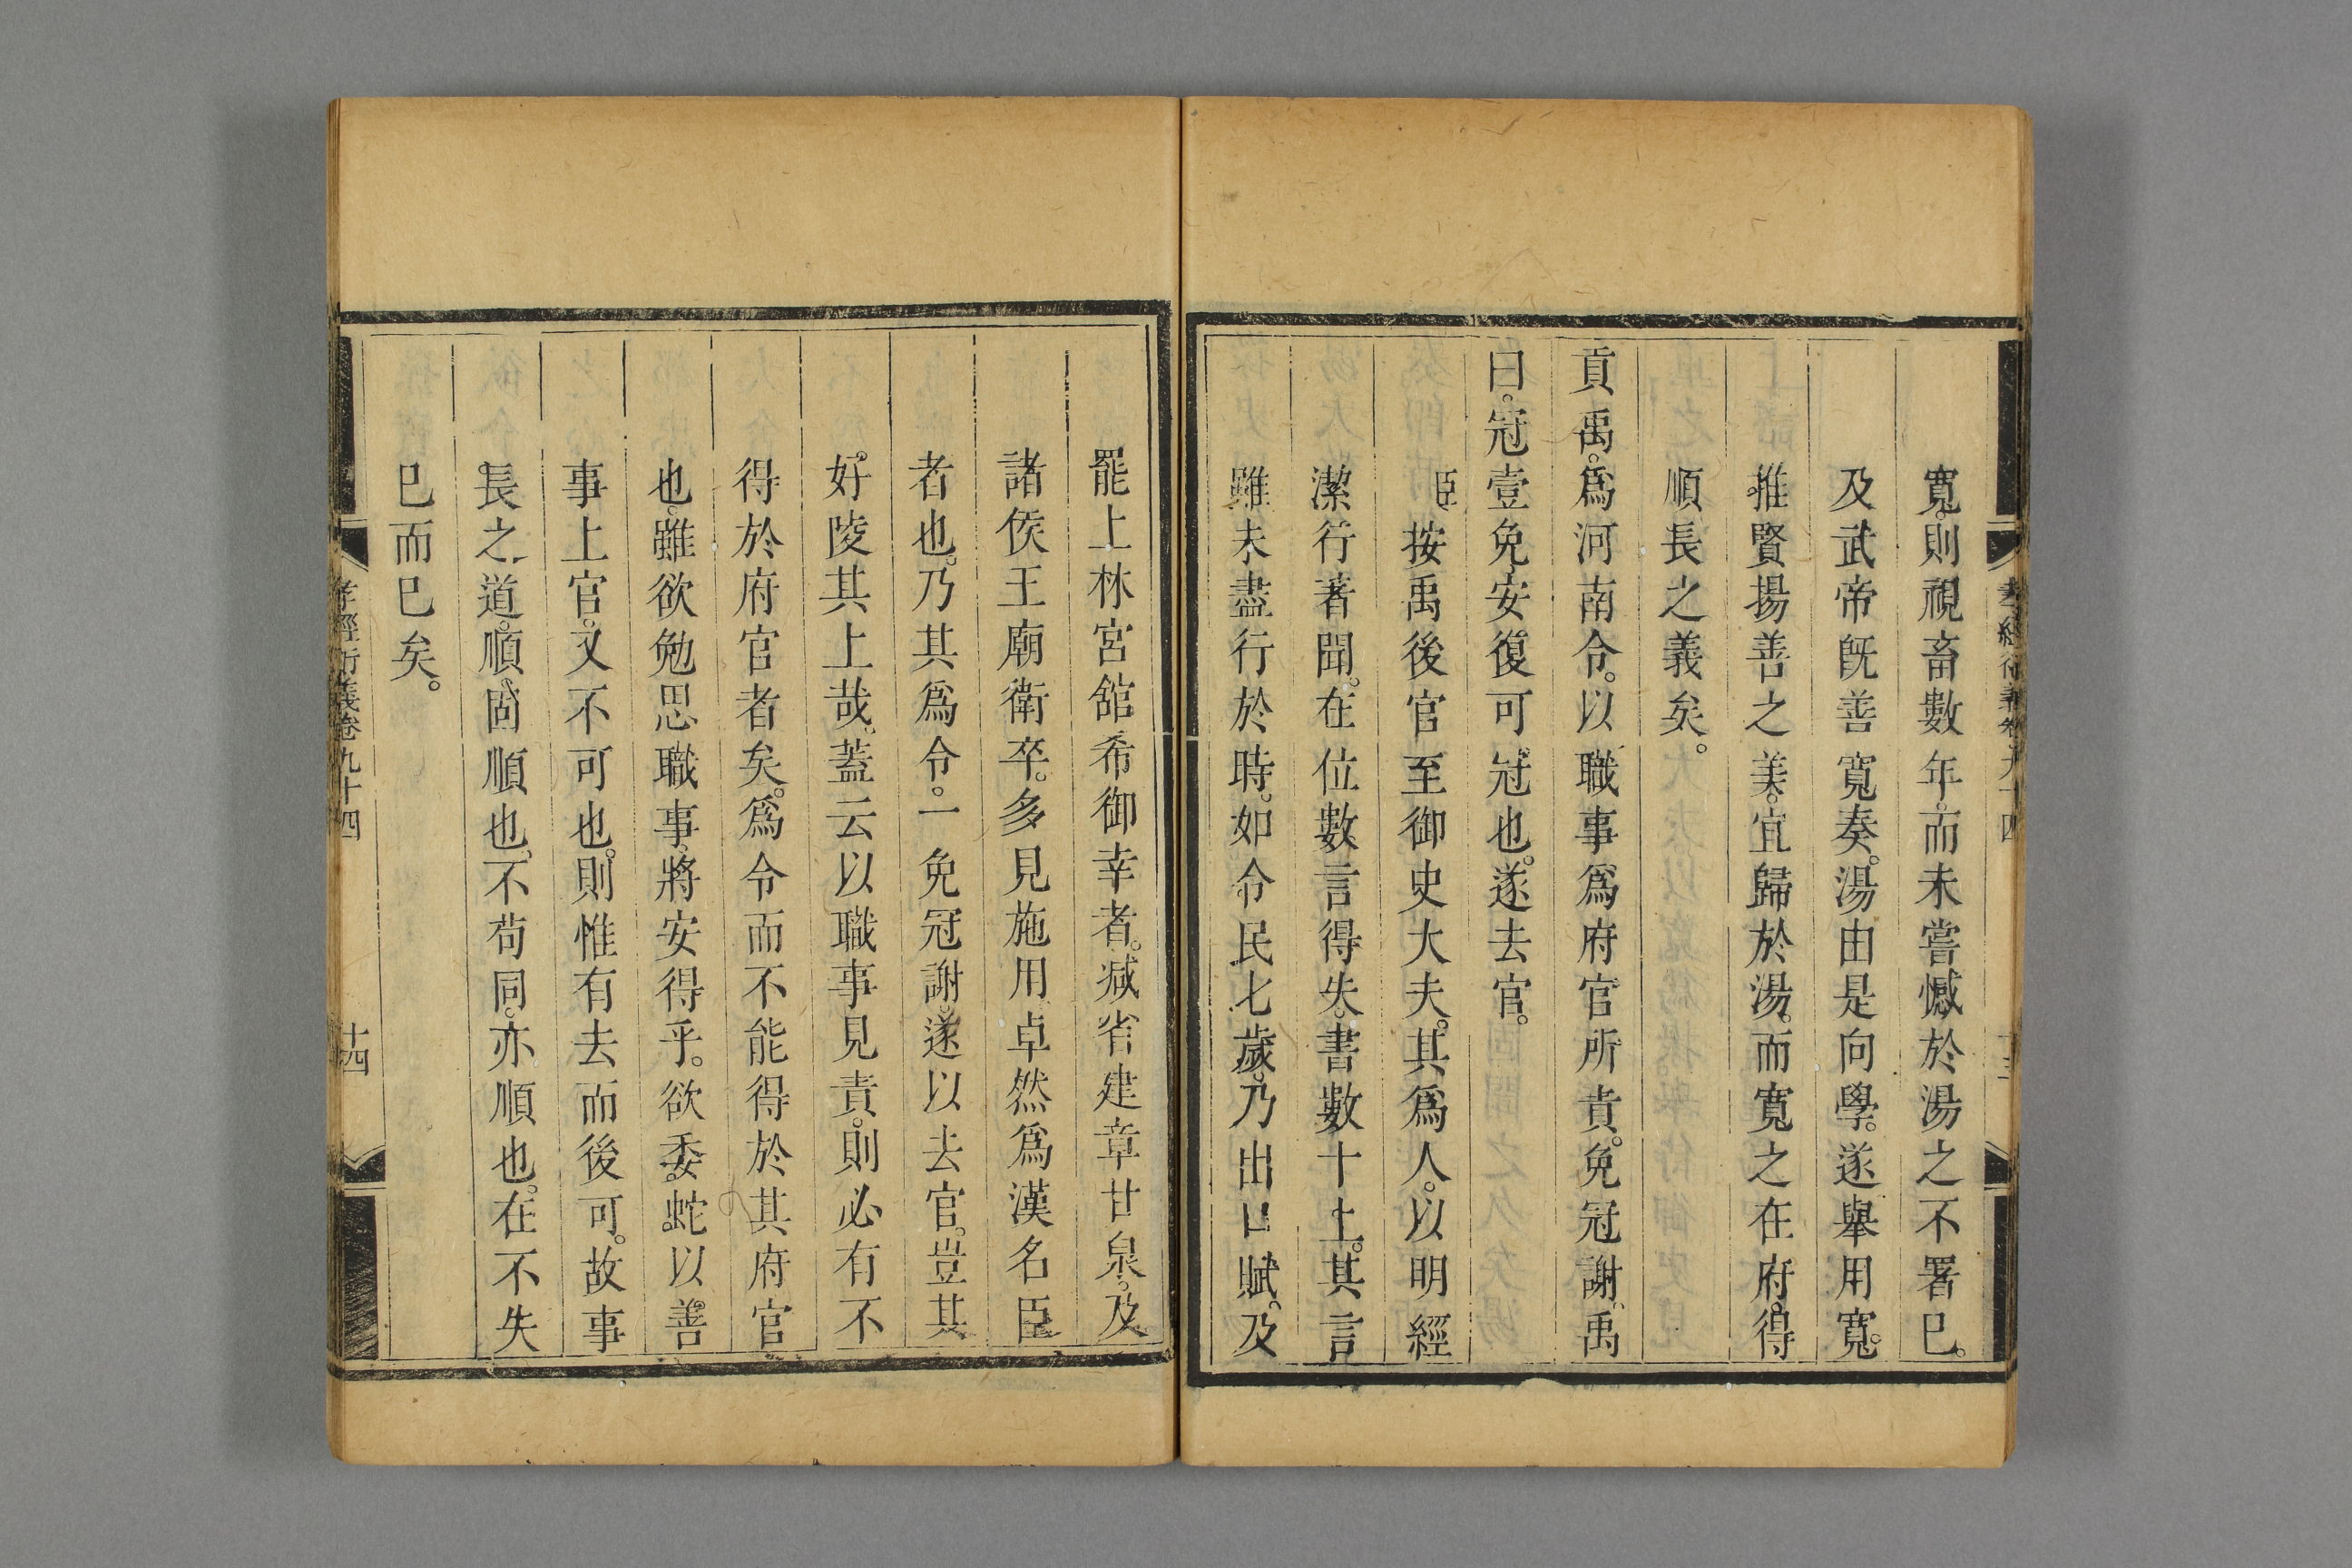 寬。則視畜數年。而未嘗憾於湯之不署已。
及武帝旣善寬奏。湯由是向學。遂舉用寬。
推賢揚善之美。宜歸於湯。而寬之在府。得
順長之義矣。
貢禹。爲河南令。以職事爲府官所責。免冠謝。禹
曰。冠壹免。安復可冠也。遂去官。
臣按禹後官至御史大夫。其爲人。以明經
潔行著聞。在位數言得失。書數十上。其言
雖未盡行於時。如令民七歲。乃出口賦。及
罷上林宮館希御幸者。減省建章甘泉。及
諸侯王廟衛卒。多見施用。卓然爲漢名臣
者也。乃其爲令。一免冠謝。遂以去官。豈其
好陵其上哉。蓋云以職事見責。則必有不
得於府官者矣。爲令而不能得於其府官
也。雖欲勉思職事。將安得乎。欲委蛇以善
事上官。又不可也。則惟有去而後可。故事
長之道。順。固順也。不苟同。亦順也。在不失
已而已矣。
孝經衍義卷九十四
十四